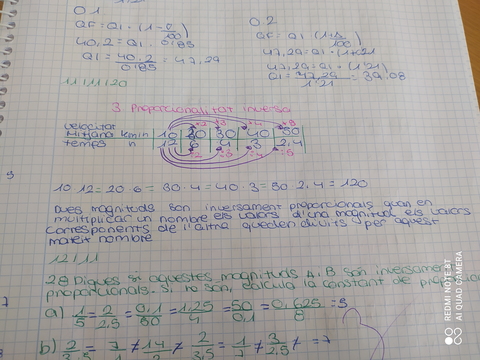 0.1
QF = QI · (1 - 0/100)
40,2 = QI · 0'85
QI = 40,2/0'85 = 47,29
11/11/20
0.2
QF = QI (1+/100)
47,29 = QI · 1+21
47,29 = QI · (1'21)
QI = 47,29/1'21 = 39.08
3 Proporcionalitat inversa
velocitat
Mitjana km/n 10 20 30 40 50
temps n 12 6 4 3 2,4
·2 ·3 ·4 ·5
:2 :3 :4 :5
10·12 = 20·6 = 30·4 = 40·3 = 50·2,4 = 120
Dues magnituds son inversament proporcionals quan en
multiplicar un nombre els valors d'una magnitud els valors
corresponents de l'altra queden dividits per aquest
mateix nombre
12/11
28 Digues si aquestes magnituds A, B són inversame
proporcionals. Si ho són, calcula la constant de proporcio
a) 1/5 = 2/2,5 = 0,1/50 = 1,25 = 50/0,1 = 0,625/8 = 5
b) 2/3,5 = 7 ≠ 14/2 ≠ 2/3,5 = 1/7 ≠ 3/2,5 ≠ = 7
REDMI NOTE 8T
AI QUAD CAMERA